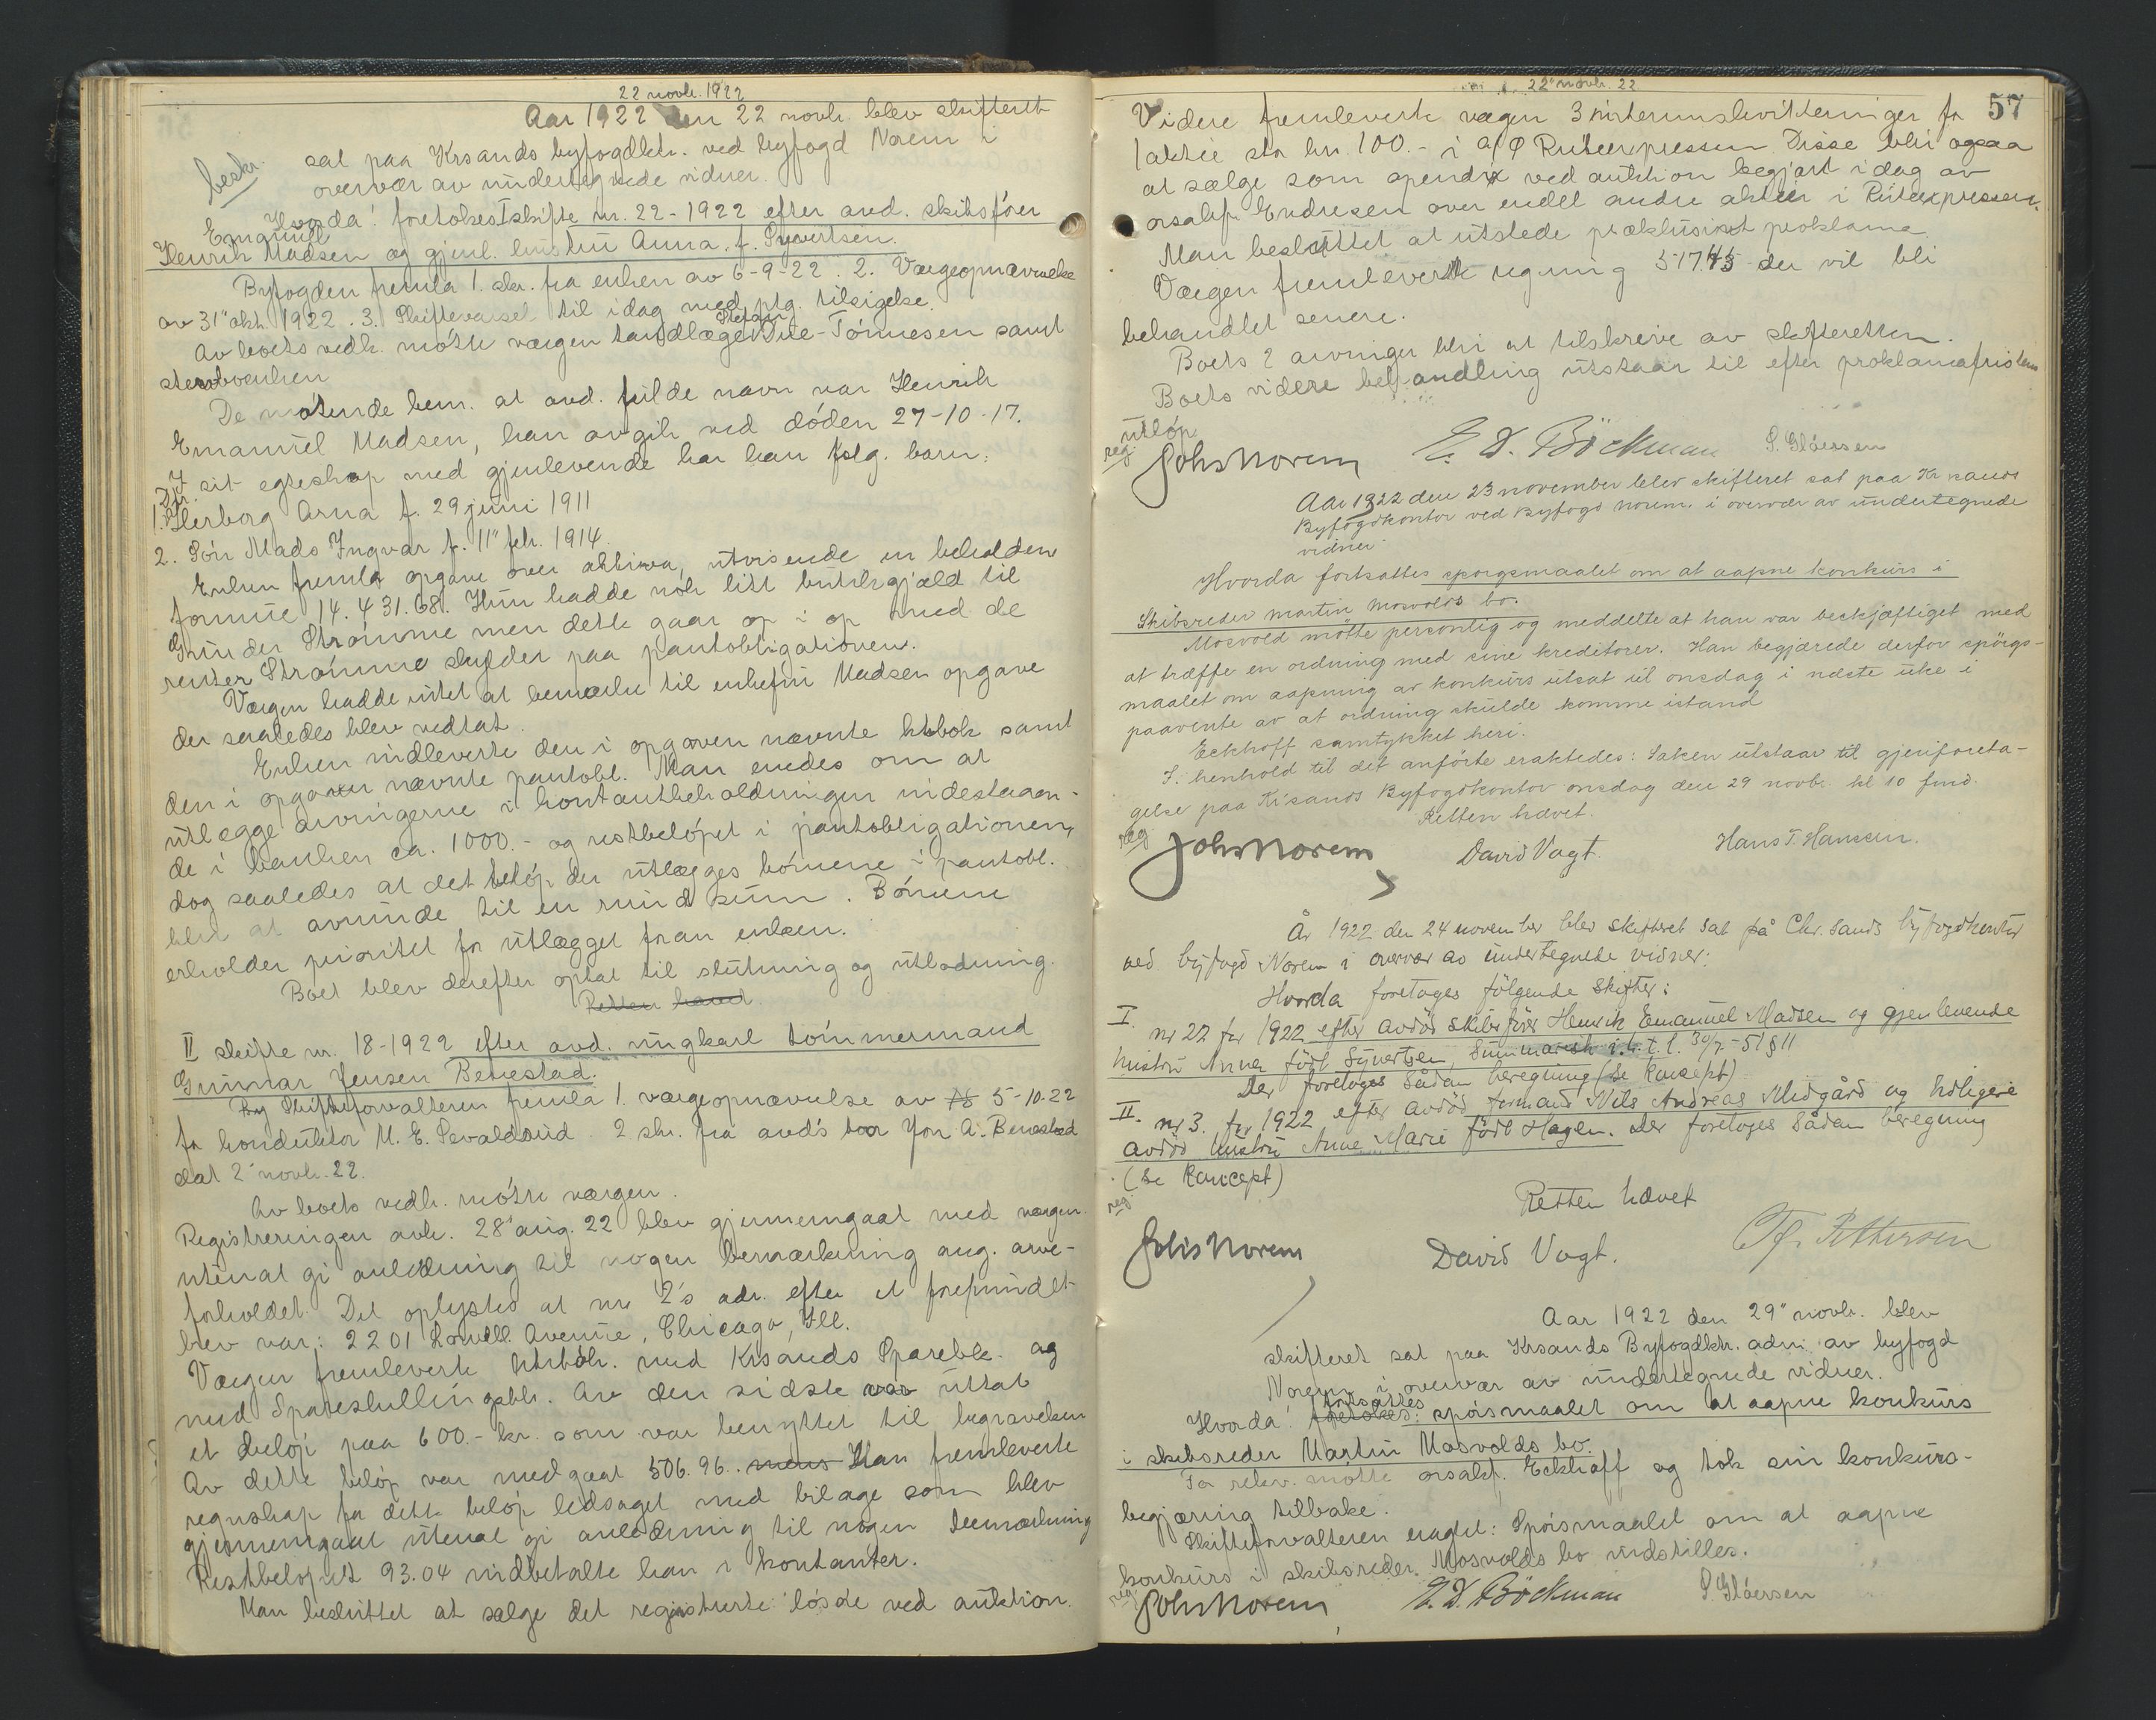 22 novb. 1922
Aar 1922 den 22 novb. blev skifteret
beskr.
sat paa Krsands byfogdktr. ved byfogd Norem i
overvær av undertegnede vidner.
Hvorda! foretokes I skifte nr. 22-1922 efter avd. skibsfører
Emanuel
Henrik Madsen og gjenl. hustru Anna f. Syvertsen.
Byfogden fremla 1. skr. fra enken av 6-9-22. 2. Værgeopnævnelse
av 31" okt. 1922. 3. Skiftevarsel til idag med ptg. tilsigelse.
Av boets vedk. møtte værgen tandlæge Due-Tönnesen samt
sterboenken
De møtende bem. at avd. fulde navn var Henrik
Emanuel Madsen, han avgik ved döden 27-10-17.
I sit egteskap med gjenlevende har han følg. barn:
1. Dtr. Herborg Arna f. 29 juni 1911
2. Søn Mads Ingvar f. 11" feb. 1914.
Enken fremla opgave over aktiva, utvisende en beholden
formue 14.431.68. Hun hadde nok litt butikgjæld til
Gunder Strömme men dette gaar op i op med de
renter Strömme skylder paa pantobligationen.
Værgen hadde intet at bemærke til enkefru Madsen opgave
der saaledes blev vedtat.
Enken indleverte den i opgaven nævnte bkbok samt
den i opgaven nævnte pantobl. Man enedes om at
utlægge arvingerne i kontantbeholdningen indestaaen-
de i banken ca. 1000.- og restbelöpet i pantobligationen,
dog saaledes at det belöp der utlægges börnene i pantobl.
blir at avrunde til en rund sum. Börnene
erholder prioritet for utlægget foran enken.
Boet blev derefter optat til slutning og utlodning.
Retten hævet.
II skifte nr. 18-1922 efter avd. ungkarl tömmermand
Gunnar Jensen Benestad.
Skifteforvalteren fremla 1. værgeopnævnelse av 5-10-22
for konduktör M. E. Sevaldsrud. 2 skr. fra avd's bror Jon A. Benestad
dat 2' novb. 22.
Av boets vedk. møtte værgen.
Registreringen avh. 28' aug. 22 blev gjennemgaat med værgen
utenat gi anledning til nogen bemærkning ang. arve-
forholdet. Det oplystes at nr 2's adr. efter et forefundet
brev var: 2201 Lowell Avenue, Chicago, Ill.
Værgen fremleverte bkbok. med Krsands Sparebk. og
med Spareskillingsbk. Av den sidste var uttat
et belöp paa 600.- kr. som var benyttet til begravelsen
Av dette belöp var medgaat 506.96. mens Han fremleverte
regnskap for dette belöp ledsaget med bilage som blev
gjennemgaat utenat gi anledning til nogen bemærkning
Restbelöpet 93.04 indbetalte han i kontanter.
Man besluttet at sælge det registrerte lösöre ved auktion.
22" novb. 22
57
Videre fremleverte værgen 3 interimskvitteringer for
1 aktie stor kr. 100.- i A/S Ruteexpressen. Disse blir ogsaa
at sælge som apendix ved auktion begjært idag av
orsakf. Endresen over endel andre aktier i Ruteexpressen.
Man besluttet at utstede præklusivt proklama.
Værgen fremleverte regning 517.45 der vil bli
behandlet senere.
Boets 2 arvinger blir at tilskrive av skifteretten.
Boets videre behandling utstaar til efter proklamafristens
utlöp
reg.
Johs Norem E. D. Böckman S. Glöersen
Aar 1922 den 23 november blev skifteret sat paa Krsands
Byfogdkontor ved Byfogd Norem i overvær av undertegnede
vidner.
Hvorda fortsattes spørgsmaalet om at aapne konkurs i
Skibsreder Martin Mosvolds bo.
Mosvold møtte personlig og meddelte at han var beskjæftiget med
at træffe en ordning med sine kreditorer. Han begjærede derfor spörgs-
maalet om aapning av konkurs utsat til onsdag i næste uke i
paavente av at ordning skulde komme istand
Eckhoff samtykket heri.
I henhold til det anførte eraktedes: Saken utstaar til gjenforeta-
gelse paa Krsands Byfogdkontor onsdag den 29 novbr. kl 10 fmd.
Retten hævet.
reg.
Johs Norem David Vogt. Hans T. Hansen.
År 1922 den 24 november blev skifteret sat på Chr.sands byfogdkontor
ved byfogd Norem i overvær av undertegnede vidner:
Hvorda foretoges fölgende skifter:
I nr 22 for 1922 efter avdöd skibsförer Henrik Emanuel Madsen og gjenlevende
hustru Anna född Syvertsen, Summarisk i.h.t. l. 30/7-51 § 11
Der foretoges sådan beregning (se Koncept)
II nr 3. for 1922 efter avdöd formand Nils Andreas Midgård og tidligere
avdöd hustru Anne Marie född Hagen. Der foretoges sådan beregning
(se Koncept)
Retten hævet
reg.
Johs Norem David Vogt. Pettersen
Aar 1922 den 29" novb. blev
skifteret sat paa Krsands Byfogdktr. adm. av byfogd
Norem i overvær av undertegnede vidner.
Hvorda! fortsattes foretokes: spörsmaalet om at aapne konkurs
i skibsreder Martin Mosvolds bo.
For rekv. møtte orsakf. Eckhoff og tok sin konkurs-
begjæring tilbake.
Skifteforvalteren eragtet: Spörsmaalet om at aapne
konkurs i skibsreder Mosvolds bo indstilles.
reg.
Johs Norem E. D. Böckman S. Glöersen